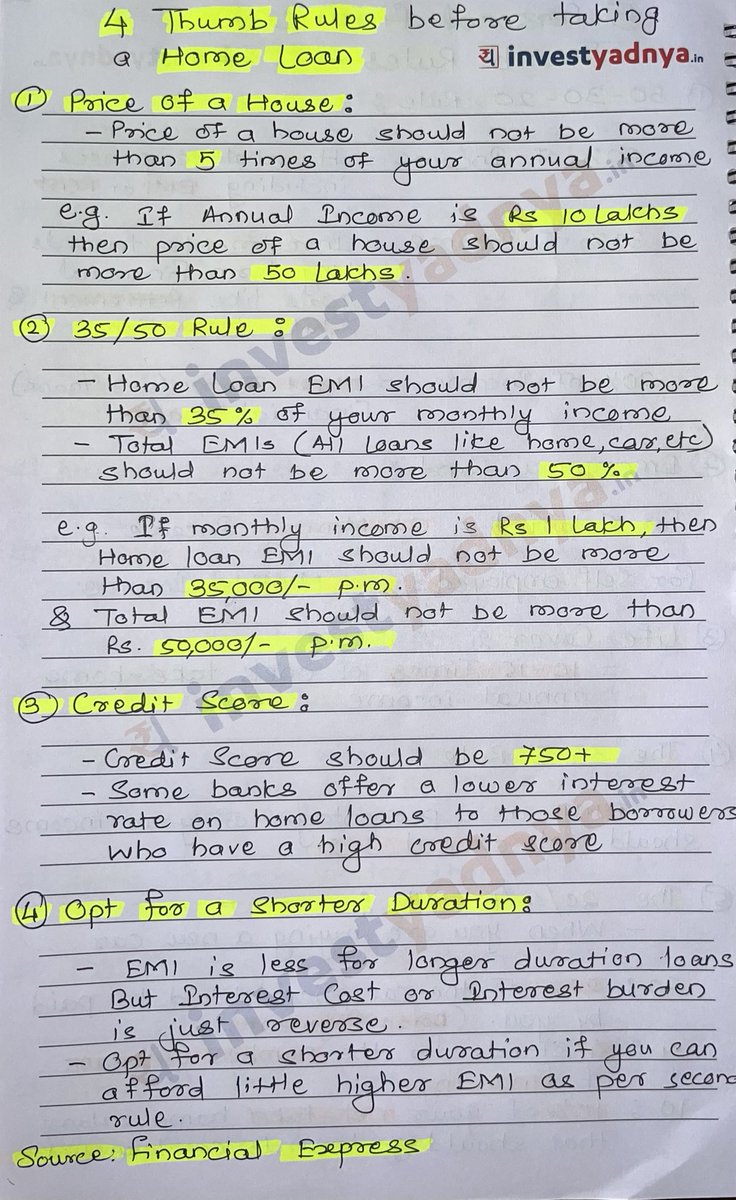 4 Thumb Rules before taking
a Home Loan
investyadnya.in
① Price of a House:
- Price of a house should not be more
than 5 times of your annual income
e.g. If Annual Income is Rs 10 Lakhs
then price of a house should not be
more than 50 Lakhs.
② 35/50 Rule:
- Home Loan EMI should not be more
than 35% of your monthly income
- Total EMIs (All loans like home, car, etc)
should not be more than 50%.
e.g. If monthly income is Rs 1 lakh, then
Home loan EMI should not be more
than 35,000/- p.m.
& Total EMI should not be more than
Rs. 50,000/- p.m.
③ Credit Score:
- Credit Score should be 750+
- Some banks offer a lower interest
rate on home loans to those borrowers
who have a high credit score
④ Opt for a shorter Duration:
- EMI is less for longer duration loans
But Interest Cost or Interest burden
is just reverse.
- Opt for a shorter duration if you can
afford little higher EMI as per second
rule.
Source: Financial Express